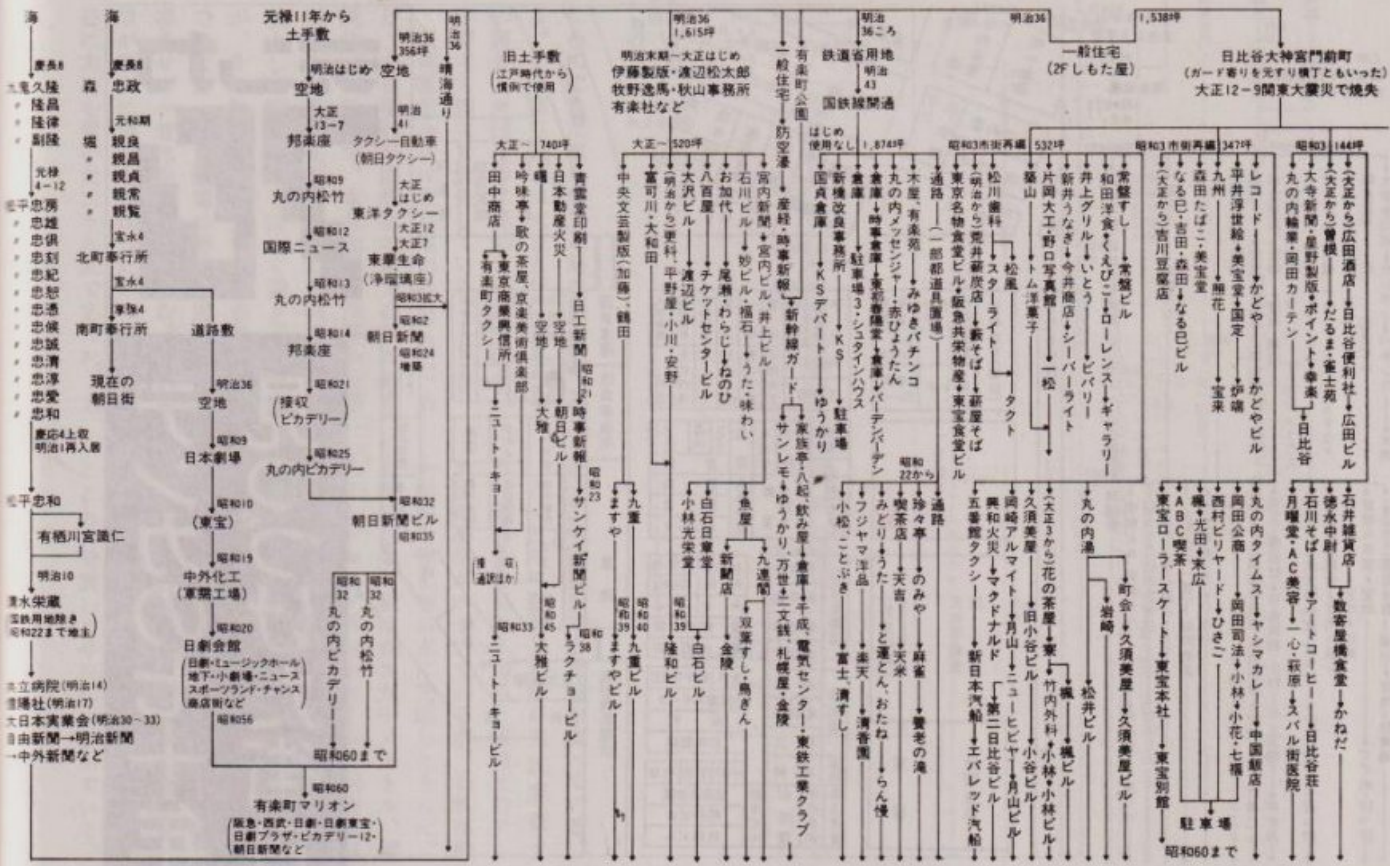 海
慶長8
九鬼久隆
〃 隆昌
〃 隆律
〃 副隆
元禄
4－12
松平忠房
〃 忠雄
〃 忠倶
〃 忠刻
〃 忠紀
〃 忠恕
〃 忠憑
〃 忠候
〃 忠誠
〃 忠淳
〃 忠愛
〃 忠和
慶応4上収
明治1再入居
松平忠和
有栖川宮
明治10
清水栄蔵
国鉄用地除き
昭和22まで地主
共立病院(明治14)
(明治17)
大日本実業会(明治30～33)
自由新聞→明治新聞
→中外新聞など
海
慶長8
森 忠政
元和期
堀 親良
〃 親昌
〃 親貞
〃 親常
〃 親覧
宝永4
北町奉行所
宝永4
享保4
南町奉行所
現在の
朝日街
道路敷
明治36
空地
昭和9
日本劇場
昭和10
(東宝)
昭和19
中外化工
(軍需工場)
昭和20
日劇会館
日劇・ミュージックホール
地下・小劇場・ニュース
スポーツランド・チャンス
商店街など
昭和56
元禄11年から
土手敷
明治はじめ
空地
大正
13－7
邦楽座
昭和9
丸の内松竹
昭和12
国際ニュース
昭和13
丸の内松竹
昭和14
邦楽座
昭和21
(接収
ピカデリー)
昭和25
丸の内ピカデリー
明治36
356坪
空地
明治
41
タクシー自動車
(朝日タクシー)
大正
はじめ
東洋タクシー
大正12
大正7
東華生命
(浄瑠璃座)
昭和3拡大
昭和2
朝日新聞
昭和24
増築
昭和32
朝日新聞ビル
昭和35
昭和
32
昭和
32
丸の内ピカデリー
丸の内松竹
昭和60まで
昭和60
有楽町マリオン
阪急・西武・日劇・日劇東宝・
日劇プラザ・ピカデリー12・
朝日新聞など
明治36
晴海通り
旧土手敷
(江戸時代から
慣例で使用)
大正～ 740坪
田中商店
有楽町タクシー
東京商業興信所
吟味亭→歌の茶屋、京楽美術倶楽部
ニュートーキョー
昭和33
ニュートーキョービル
曙→空地→大雅
日本動産火災→空地→朝日ビル
昭和45
大雅ビル
青雲堂印刷→日工新聞
昭和21
時事新報
昭和23
サンケイ新聞ビル
昭和38
ラクチョービル
明治36
1,615坪
明治末期～大正はじめ
伊藤製版・渡辺松太郎
牧野逸馬・秋山事務所
有楽社など
大正～ 520坪
中央文芸製版(加藤)、鶴田
ますや
昭和39
ますやビル
九重
昭和40
九重ビル
富可川・大和田
(明治から)更科、平野屋・小川・安野
昭和39
隆和ビル
大沢ビル→渡辺ビル
小林光栄堂
八百屋→チケットセンタービル
白石日章堂
白石ビル
お加代→尾瀬・わらじ→ねのひ
石川ビル→妙ビル・福石→うた・味わい
宮内新聞→宮内ビル、井上ビル
魚屋
新聞店→金陵
九連閣→双葉すし・鳥ぎん
一般住宅→防空濠→産経・時事新報
有楽町公園
新幹線ガード
サンレモ・ゆうかり、万世→二文銭、札幌屋・金陵
家族亭・八起、飲み屋→倉庫→千成、電気センター・東鉄工業クラブ
明治
36ころ
鉄道省用地
明治
43
国鉄線開通
はじめ
使用なし 1,874坪
国貞倉庫→KSデパート→ゆうかり
新橋改良事務所→KS→駐車場
倉庫→駐車場3・シュタインハウス
倉庫→時事倉庫→東都春陽堂→倉庫→バーデンバーデン
丸の内メッセンジャー・赤ひょうたん
木屋、有楽苑→みゆきパチンコ
通路→(一部都道具置場)
昭和
22から
通路
小松、ことぶき→富士、清すし
フジヤマ洋品→楽天→清香園
みどり→うた→と蓮とん、おたね→らん慢
喫茶店→天吉→天米
珍々亭→のみや→麻雀→養老の滝
明治36
1,538坪
一般住宅
(2Fしもた屋)
昭和3市街再編 532坪
東京名物食堂ビル・阪急共栄物産→東宝食堂ビル
(明治から)荒井薪炭店→藪そば→蔀屋そば
松川歯科→スターライト→タクト
松風
築山→トム洋菓子→一松
片岡大工→野口写真館
新井うなぎ→今井商店→シーバーライト
井上グリル→いとう→ビバリー
和田洋食→くえびこ→ローレンス→ギャラリー
常盤すし→常盤ビル
五番館タクシー→新日本汽船→エバレッド汽船
興和火災→マクドナルド→第二日比谷ビル
岡崎アルマイト→月山→ニューヒビヤ→月山ビル
久須美屋→旧小谷ビル→小谷ビル
(大正3から)花の茶屋→東→竹内外科→小林→小林ビル
楓→楓ビル
丸の内湯
岩崎
松井ビル
町会→久須美屋→久須美屋ビル
日比谷大神宮門前町
(ガード寄りを元すり横丁ともいった)
大正12－9関東大震災で焼失
昭和3市街再編 347坪
(大正から)吉川豆腐店
なる巳・吉田・森田→なる巳ビル
森田たばこ・美宝堂
九州→照花→宝来
平井浮世絵→美宝堂→国定→炉端
レコード→かどや→かどやビル
東宝ローラースケート→東宝本社→東宝別館
ABC喫茶
楓→光田→末広
西村ビリヤード→ひさご
岡田公商→岡田司法→小林→小花・七福
丸の内タイムス→ヤシマカレー→中国飯店
駐車場
昭和60まで
昭和3 144坪
丸の内輪業・岡田カーテン
大寺新聞・星野製版→ポイント→幸楽→日比谷
(大正から)曽根→だるま・雀士苑
(大正から)広田酒店→日比谷便利社→広田ビル
月曜堂・AC美容→一心・萩原→スバル街医院
石川そば→アートコーヒー→日比谷荘
徳永中尉
石井雑貨店
数寄屋橋食堂→かねだ